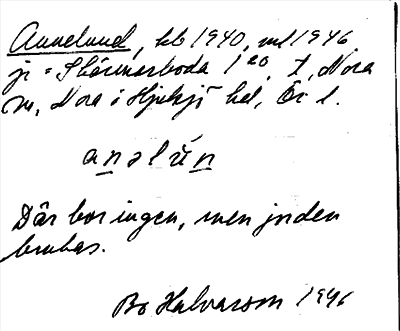 Annelund, kb 1940, ml 1946
jr = Skärmarboda 1²⁰, t, Nora
m, Nora i Hjulsjö hd, Ör l.
anəlún
Där bor ingen, men jorden
brukas.
Bo Halvarson 1946